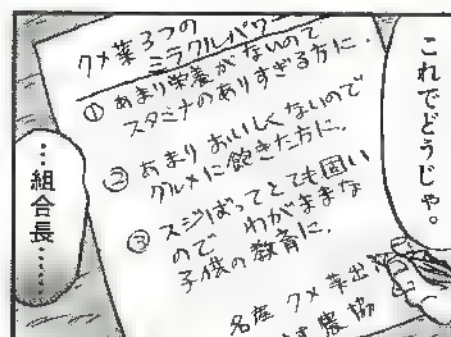 これでどうじゃ。
クメ菜3つの
ミラクルパワー
① あまり栄養がないので
スタミナのありすぎる方に.
② あまりおいしくないので
グルメに飽きた方に.
③ スジばってとても固い
ので わがままな
子供の教育に.
名産 クメ菜出
農協
…組合長……